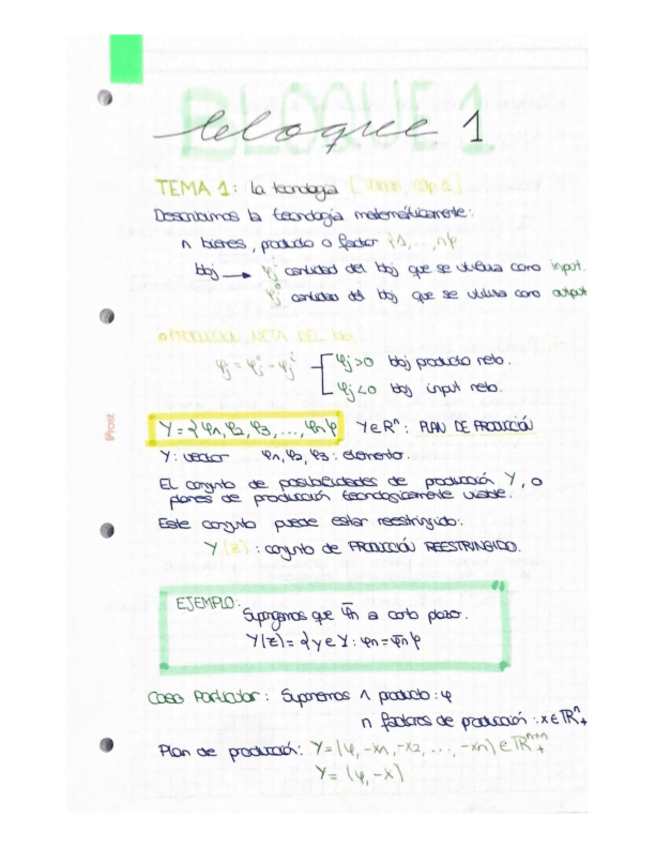 BLOQUE 1
bloque 1
TEMA 1: La tecnología [Varian, Cap 1]
Describamos la tecnología matemáticamente:
n bienes, producto o factor {1, ..., n}
bbj → yʲⁱ cantidad del bbj que se utiliza como input.
yⱼ⁰ cantidad del bbj que se utiliza como output
PRODUCCIÓN NETA DEL bbj
yⱼ = yⱼ⁰ - yⱼⁱ
yj>0 bbj producto neto.
yj<0 bbj input neto.
Y = {y1, y2, y3, ..., yn} Y∈Rⁿ: PLAN DE PRODUCCIÓN
Y: vector y1, y2, y3: elemento.
El conjunto de posibilidades de producción Y, o
planes de producción tecnológicamente viable.
Este conjunto puede estar reestringido:
Y(z): conjunto de PRODUCCIÓN REESTRINGIDO.
EJEMPLO:
Supongamos que ȳn a corto plazo.
Y(z) = {y∈Y: yn = ȳn}
Caso Particular: Suponemos 1 producto: y
n factores de producción: x∈ℝⁿ₊
Plan de producción: Y=(y, -x1, -x2, ..., -xn)∈ℝ₊ⁿ⁺ⁿ
Y= (y, -x)
iProst